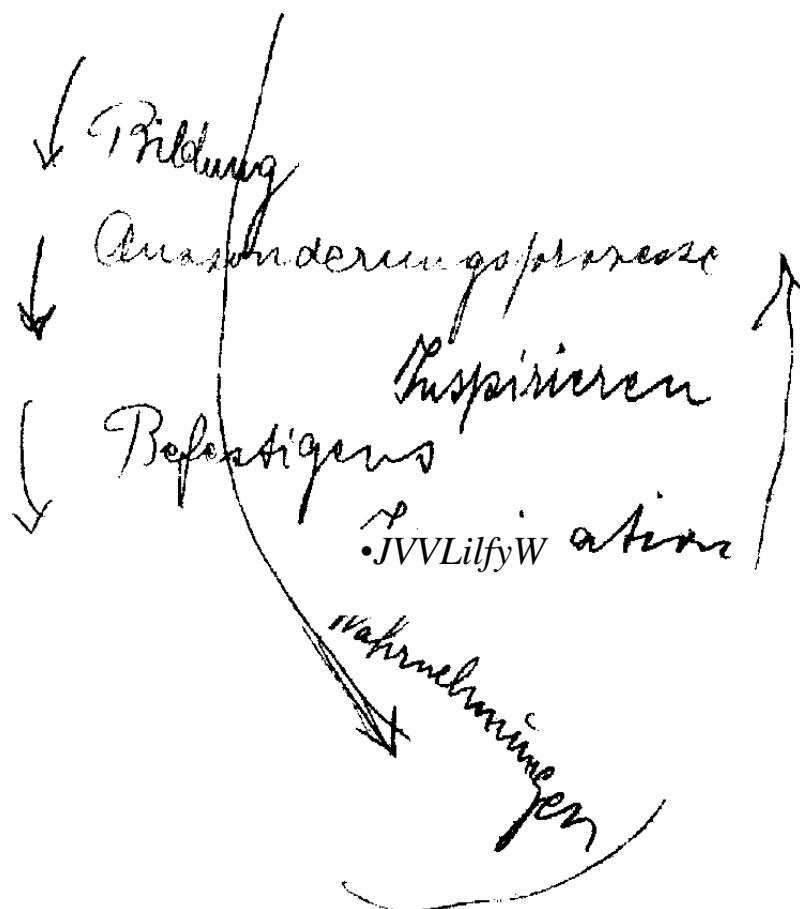 Bildung
Aussonderungsprozesse
Inspirieren
Befestigens
•JVVLilfyW ation
Wahrnehmungen